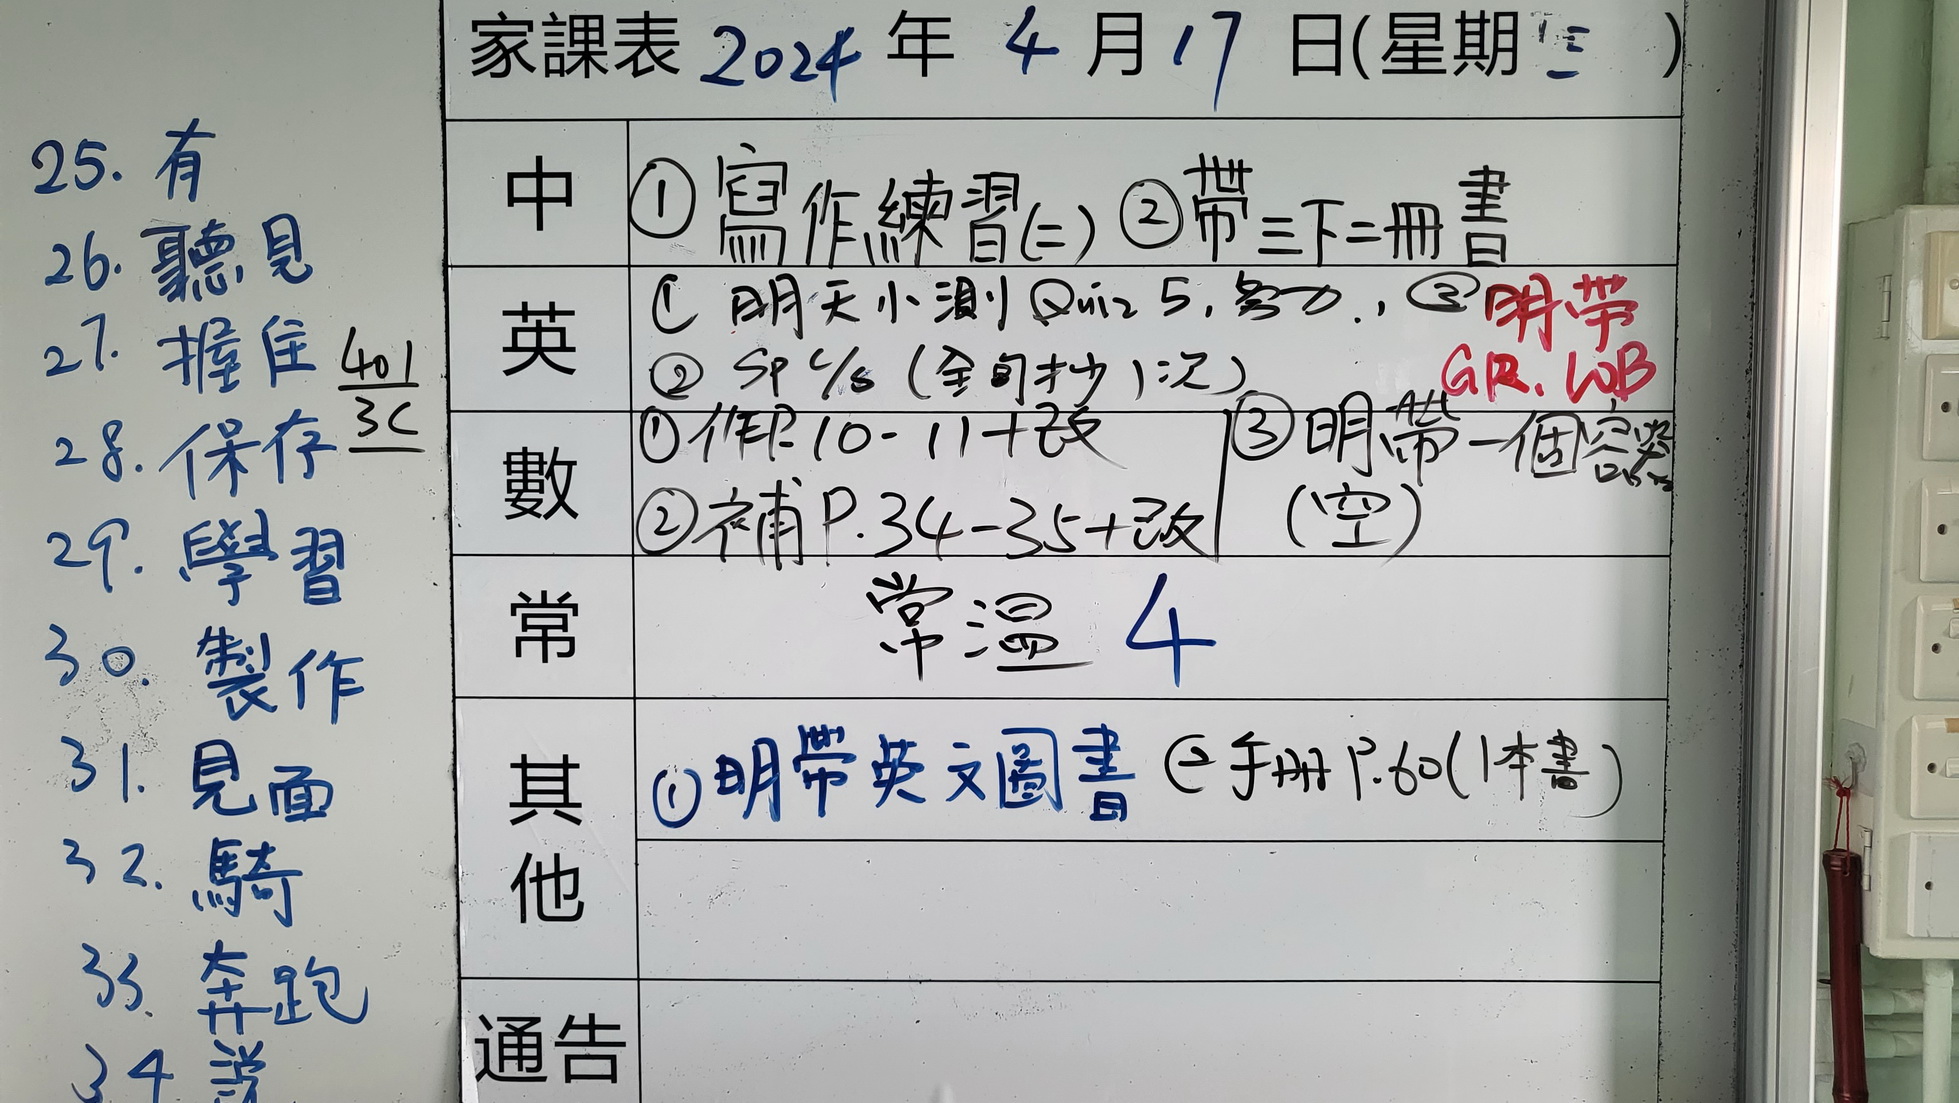 家課表 2024 年 4 月 17 日(星期三 )
中 ① 寫作練習(二) ② 帶三下二冊書
英 ① 明天小測 Quiz 5, 努力., ③ 明帶
GR. WB
② Sp c/s (全句抄1次)
數 ① 作P. 10-11+改 ③ 明帶一個容器
② 補P.34-35+改 (空)
常 常溫 4
其他 ① 明帶英文圖書 ② 手冊 P.60(1本書)
通告
25. 有
26. 聽見
27. 握住
401
3C
28. 保存
29. 學習
30. 製作
31. 見面
32. 騎
33. 奔跑
34 說